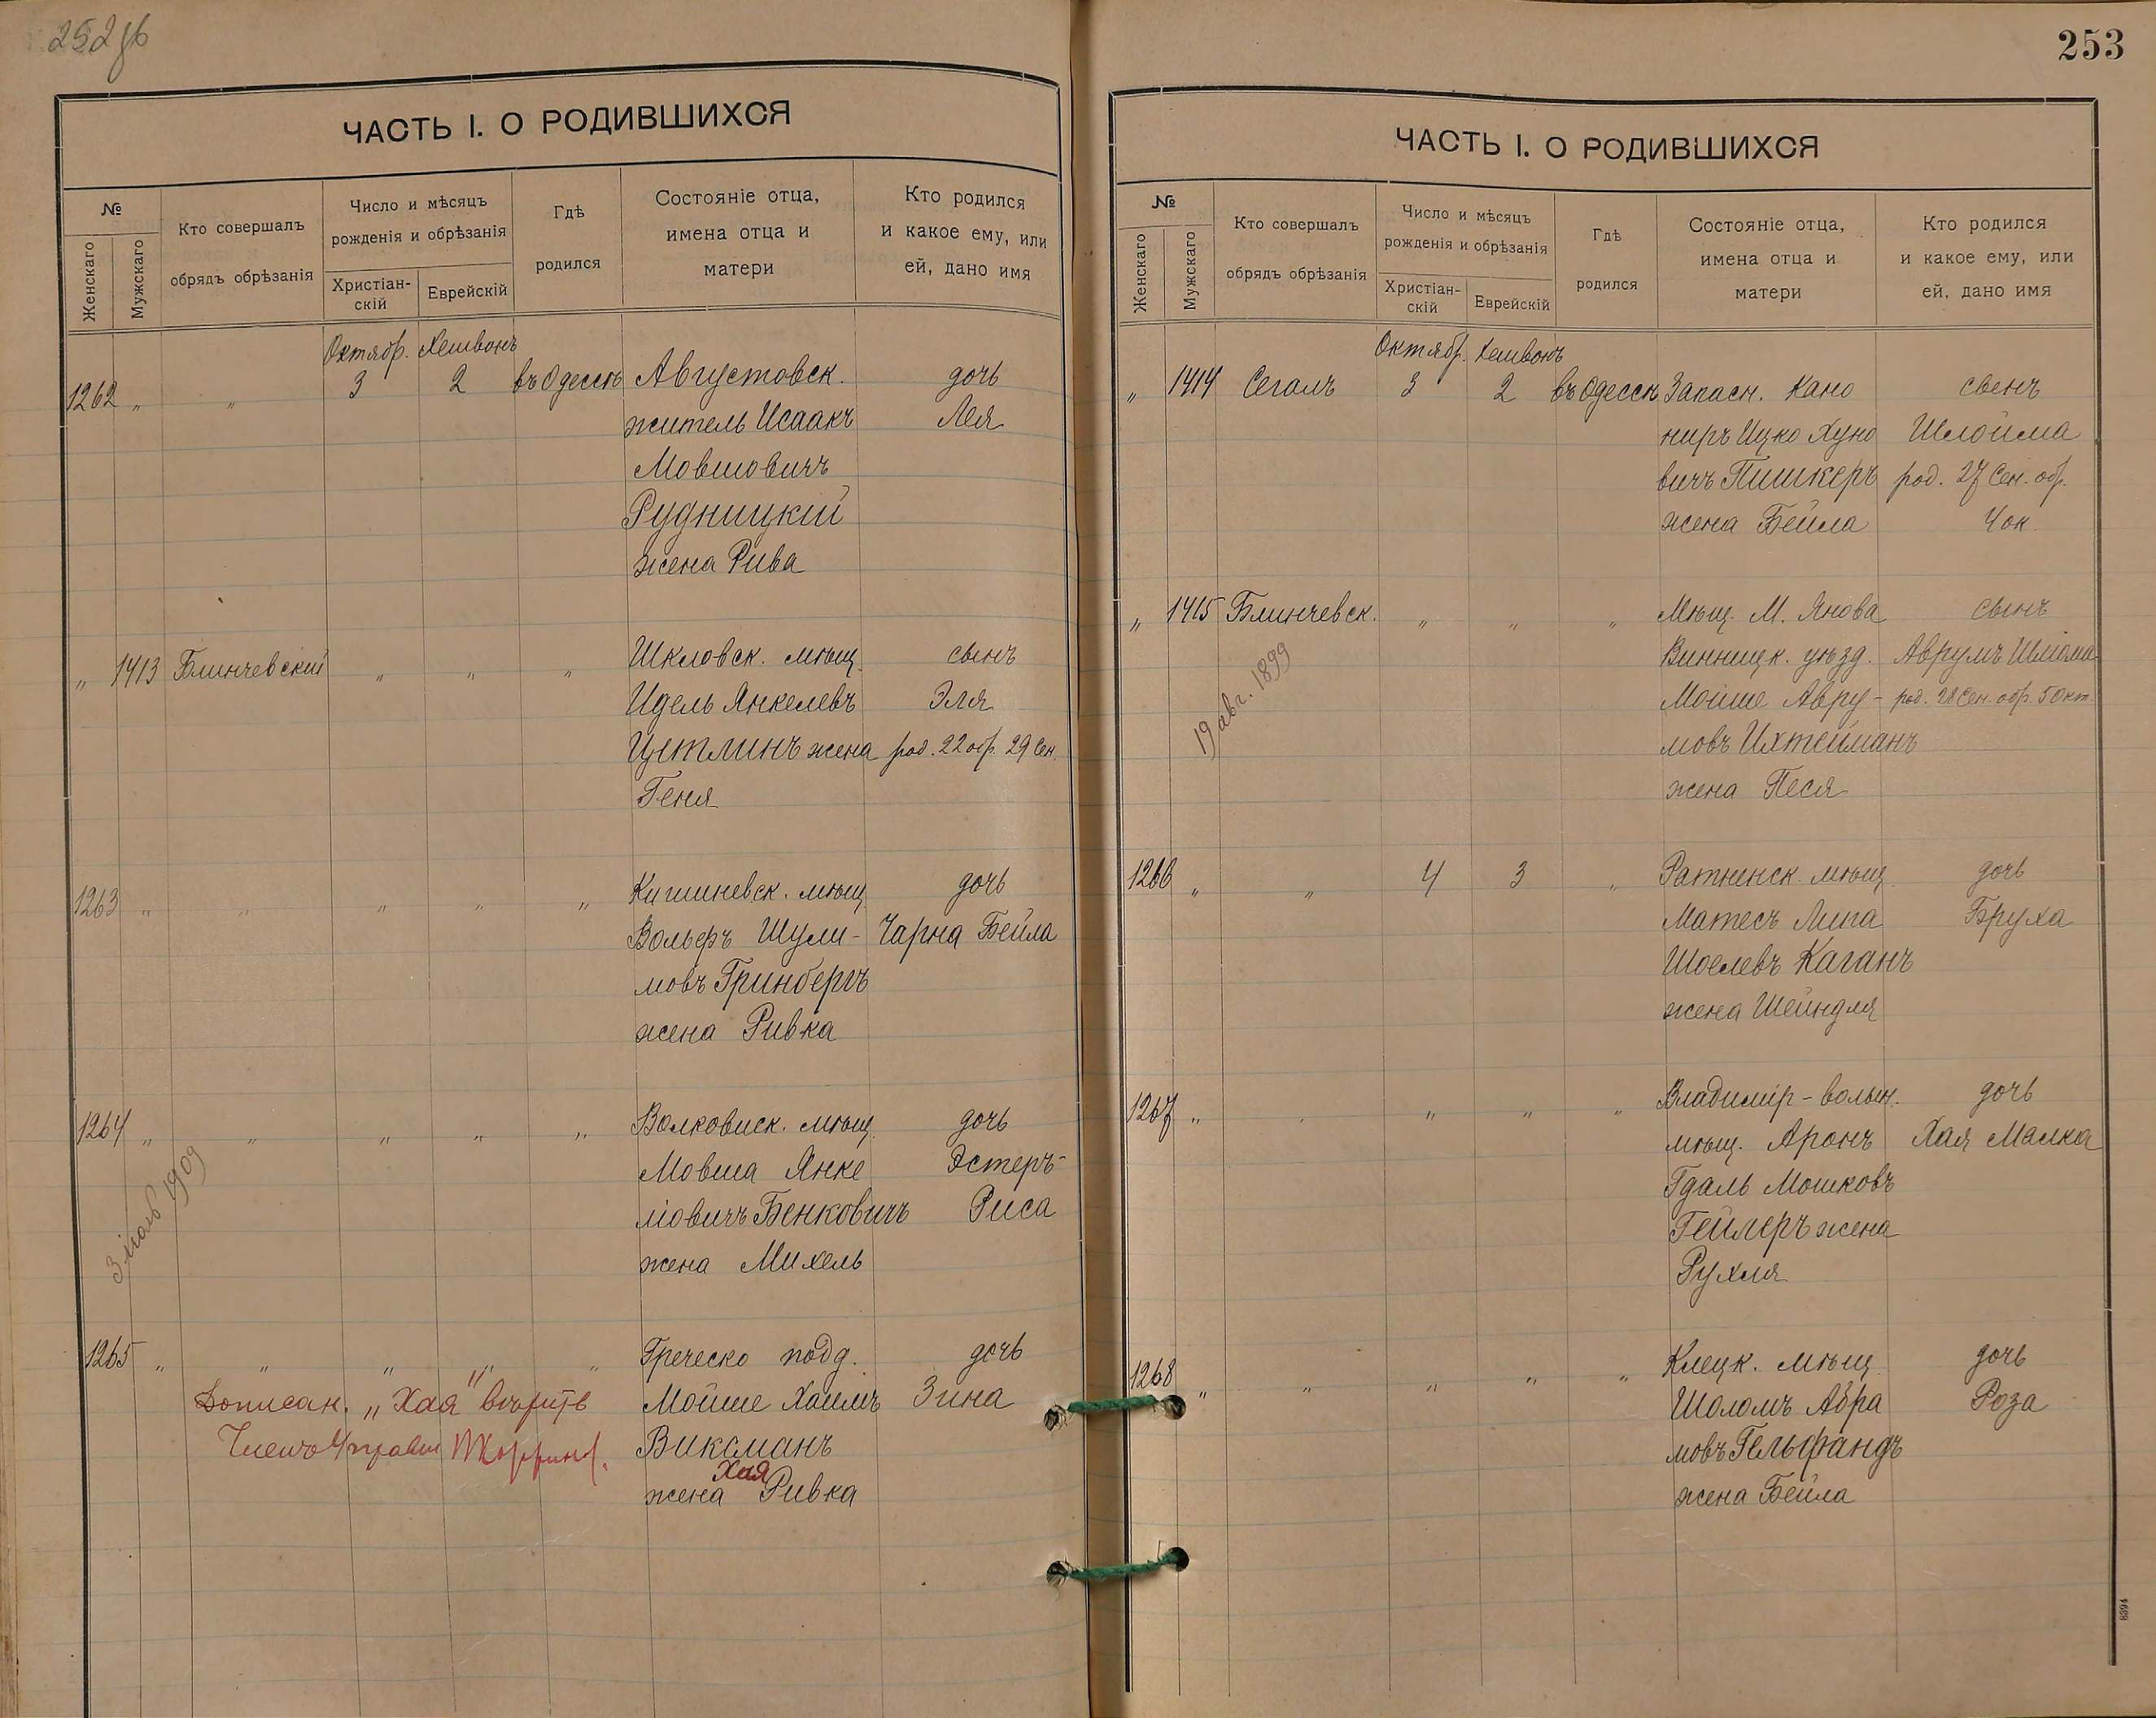 252 об
ЧАСТЬ I. О РОДИВШИХСЯ
№
Женскаго
Мужскаго
Кто совершалъ
обрядъ обрѣзанія
Число и мѣсяцъ
рожденія и обрѣзанія
Христіан-
скій
Еврейскій
Гдѣ
родился
Состояніе отца,
имена отца и
матери
Кто родился
и какое ему, или
ей, дано имя
Октябр. Хешвонъ
1262 „ „ 3 2 въ Одессѣ Августовск. дочь
житель Исаакъ Лея
Мовшовичъ
Рудницкій
жена Рива
„ 1413 Блинчевскій „ „ „ Шкловск. мѣщ. сынъ
Идель Янкелевъ Эля
Цетлинъ жена род. 22 обр. 29 Сен.
Геня
1263 „ „ „ „ „ Кишиневск. мѣщ. дочь
Вольфъ Шули- Чарна Бейла
мовъ Гринбергъ
жена Ривка
1264 „ „ „ „ „ Волковиск. мѣщ. дочь
Мовша Янке Эстеръ-
лiовичъ Бенковичъ Риса
жена Михель
3 іюль 1909
1265 „ „ „ „ „ Греческо подд. дочь
Дописан. „Хая" вѣрить Мойше Хаимъ Зина
Членъ Управы Виксманъ
Хая
жена Ривка
253
ЧАСТЬ I. О РОДИВШИХСЯ
№
Женскаго
Мужскаго
Кто совершалъ
обрядъ обрѣзанія
Число и мѣсяцъ
рожденія и обрѣзанія
Христіан-
скій
Еврейскій
Гдѣ
родился
Состояніе отца,
имена отца и
матери
Кто родился
и какое ему, или
ей, дано имя
Октябр. Хешвонъ
„ 1414 Сегалъ 3 2 въ Одессѣ Запасн. Кано сынъ
ниръ Ицко Хуно Шлойма
вичъ Пишкеръ род. 27 Сен. обр.
жена Бейла 4 ок.
„ 1415 Блинчевск. „ „ „ Мѣщ. М. Янова сынъ
Винницк. уѣзд. Аврумъ Шлiома
Мойше Авру- род. 28 Сен. обр. 5 Окт.
мовъ Ихтейманъ
жена Песя
19 авг. 1899
1266 „ „ 4 3 „ Ратненск. мѣщ. дочь
Матесъ Липа Бруха
Шоелевъ Каганъ
жена Шейндля
1267 „ „ „ „ „ Владимір-волын. дочь
мѣщ. Аронъ Хая Малка
Гдаль Мошковъ
Гейлеръ жена
Рухля
1268 „ „ „ „ „ Клецк. мѣщ. дочь
Шоломъ Абра Роза
мовъ Гельфандъ
жена Бейла
8394